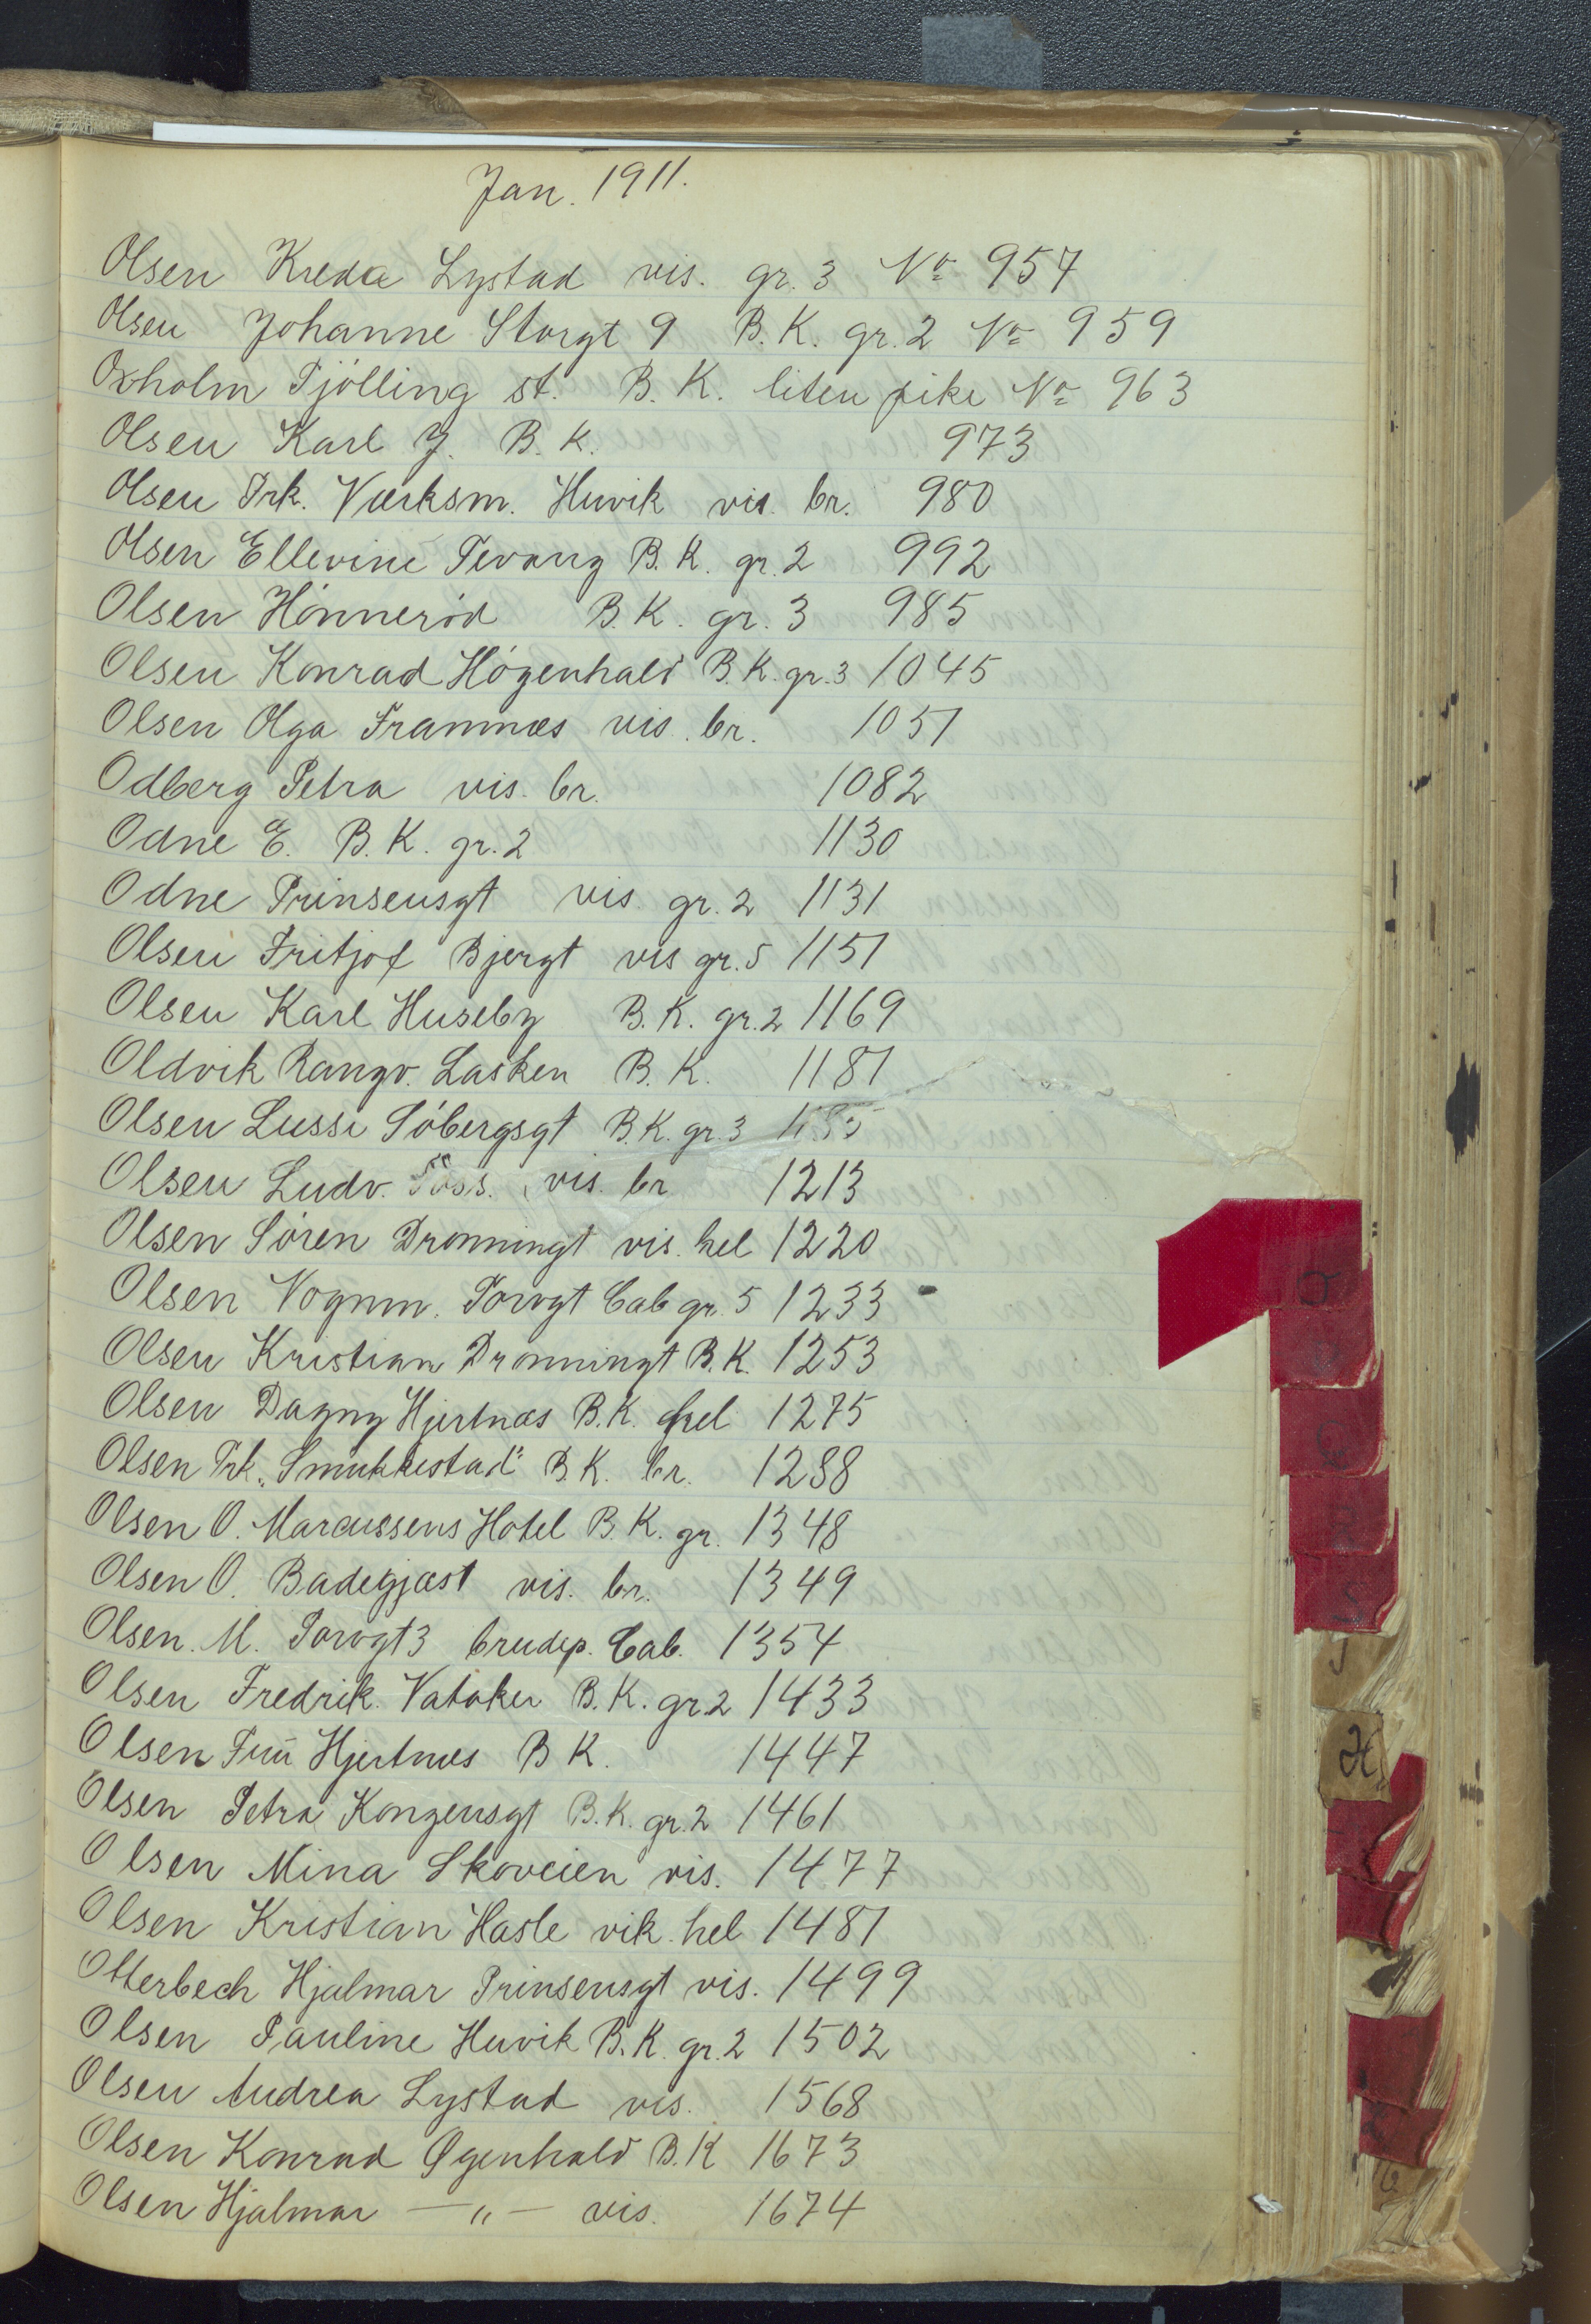 Jan. 1911.
Olsen Kreda Lystad vis. gr. 3 No 957
Olsen Johanne Storgt 9 B.K. gr. 2 No 959
Oxholm Tjölling st. B.K. liten pike No 963
Olsen Karl J. B.K. 973
Olsen Frk. Værksm. Huvik vis. br. 980
Olsen Ellevine Tevang B.K. gr. 2 992
Olsen Hónneród B.K. gr. 3 985
Olsen Konrad Hógenhald B.K. gr. 3 1045
Olsen Olga Framnæs vis. br. 1051
Odberg Petra vis. br. 1082
Odne E. B.K. gr. 2 1130
Odne Prinsensgt vis. gr. 2 1131
Olsen Fritjof Bjergt vis gr. 5 1151
Olsen Karl Huseby B.K. gr. 2 1169
Oldvik Rangv. Lasken B.K. 1181
Olsen Lussi Sóbergsgt B.K. gr. 3 1185
Olsen Ludv. vis. br 1213
Olsen Sóren Dronningt vis. hel 1220
Olsen Vognm. Torvgt Cab gr. 5 1233
Olsen Kristian Dronningt B.K. 1253
Olsen Dagny Hjertnæs B.K. hel 1275
Olsen Frk. „Smukkestad" B.K. br. 1288
Olsen O. Marcussens Hotel B.K. gr. 1348
Olsen O. Badegjæst vis. br. 1349
Olsen M. Torvgt 3 brudep. Cab. 1354
Olsen Fredrik Vataker B.K. gr. 2 1433
Olsen Fru Hjertnes B K. 1447
Olsen Petra Kongensgt B.K. gr. 2 1461
Olsen Mina Skoveien vis. 1477
Olsen Kristian Hasle vik. hel 1481
Otterbech Hjalmar Prinsensgt vis. 1499
Olsen Pauline Huvik B.K. gr. 2 1502
Olsen Andrea Lystad vis. 1568
Olsen Konrad Øgenhald B.K 1673
Olsen Hjalmar — „ — vis. 1674